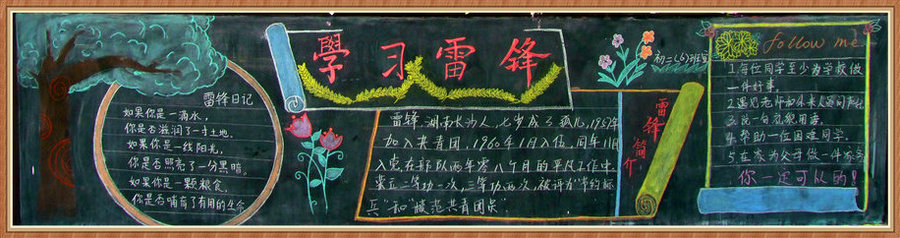 雷锋日记
如果你是一滴水，
你是否滋润了一寸土地。
如果你是一线阳光，
你是否照亮了一分黑暗。
如果你是一颗粮食，
你是否哺育了有用的生命
學习雷锋
初二(6)班
雷锋简介
雷锋，湖南长沙人，七岁成了孤儿，1957年
加入共青团，1960年1月入伍，同年11月
入党，在部队两年零八个月的平凡工作中，
荣立二等功一次，三等功两次，被评为"节约标
兵"和"模范共青团员"
follow me
1.每位同学至少为学校做
一件好事。
2.遇见老师和外来人要问声好
3.说一句礼貌用语。
4.帮助一位困难同学。
5.在家为父母做一件家务
你一定可以的！